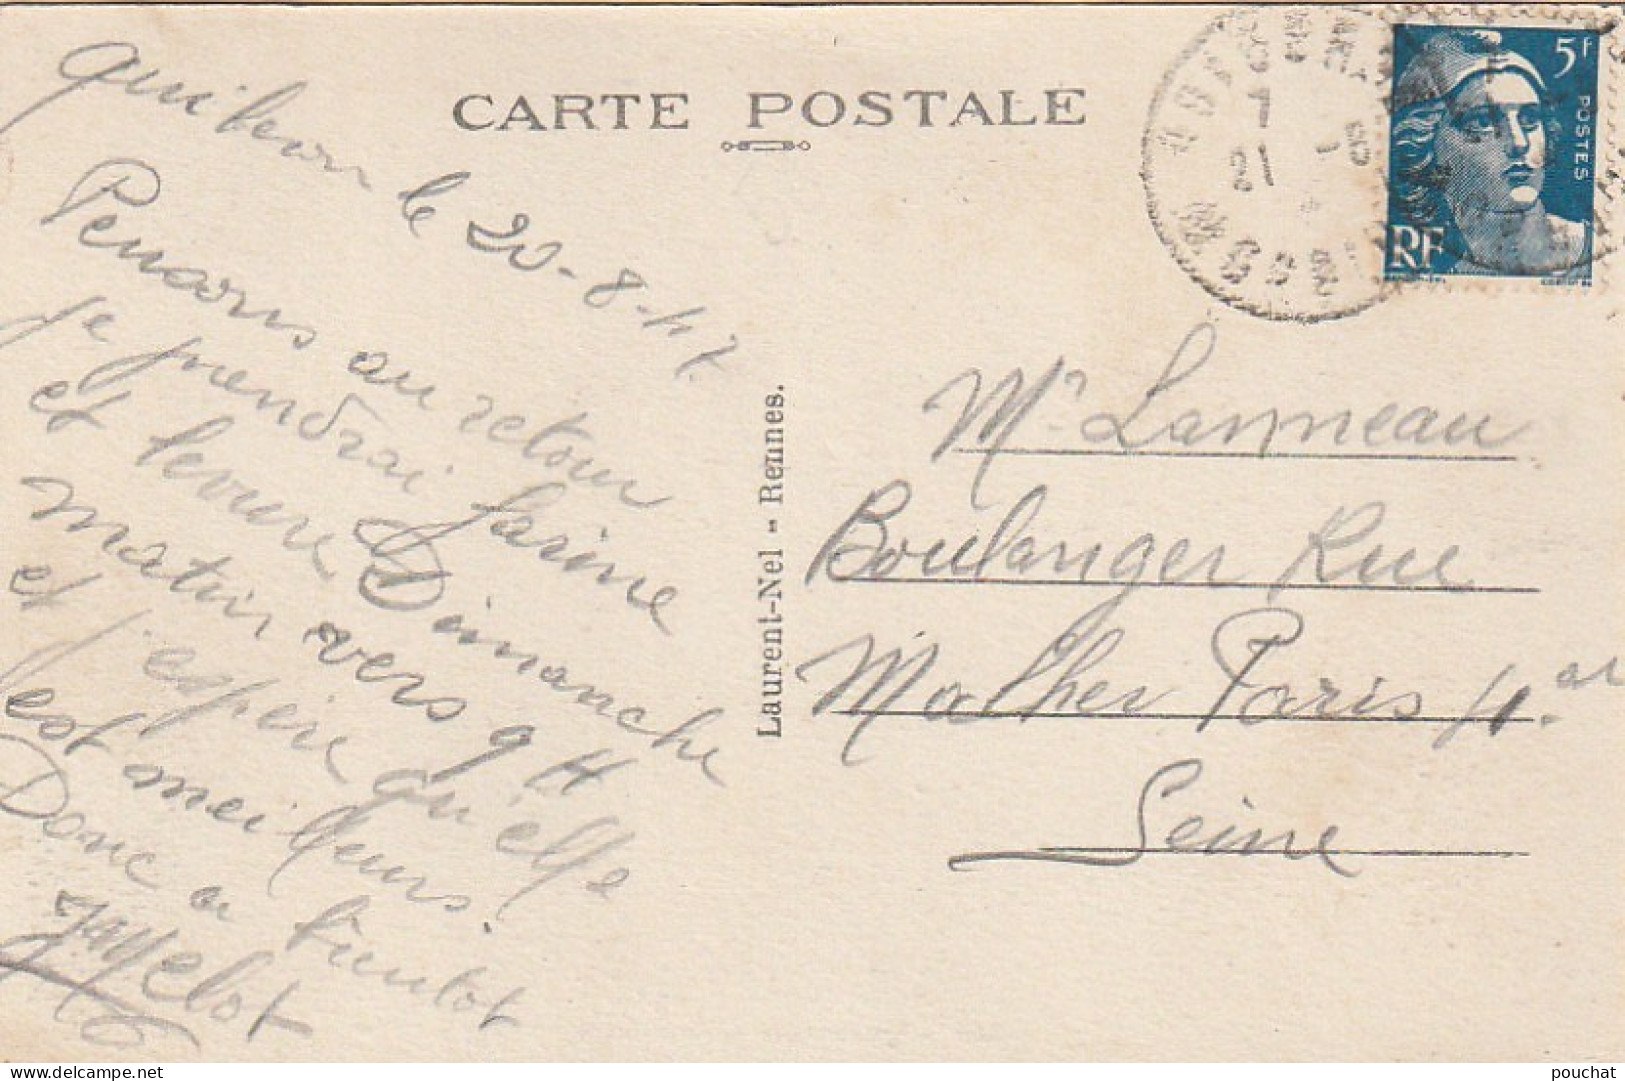 CARTE POSTALE
5F
POSTES
RF
Quiberon le 20-8-47
Pensons au retour
je prendrai farine
et levure Dimanche
matin vers 9 H
et j'espère qu'elle
est meilleurs.
Donc a bientot
Laurent-Nel - Rennes.
Mr Lanneau
Boulanger Rue
Malher Paris 4.
Seine
pouchat